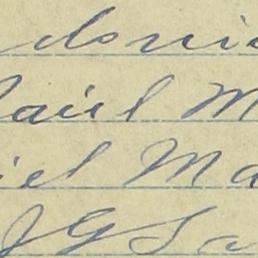 donia
Paul M
iel Ma
JGSa